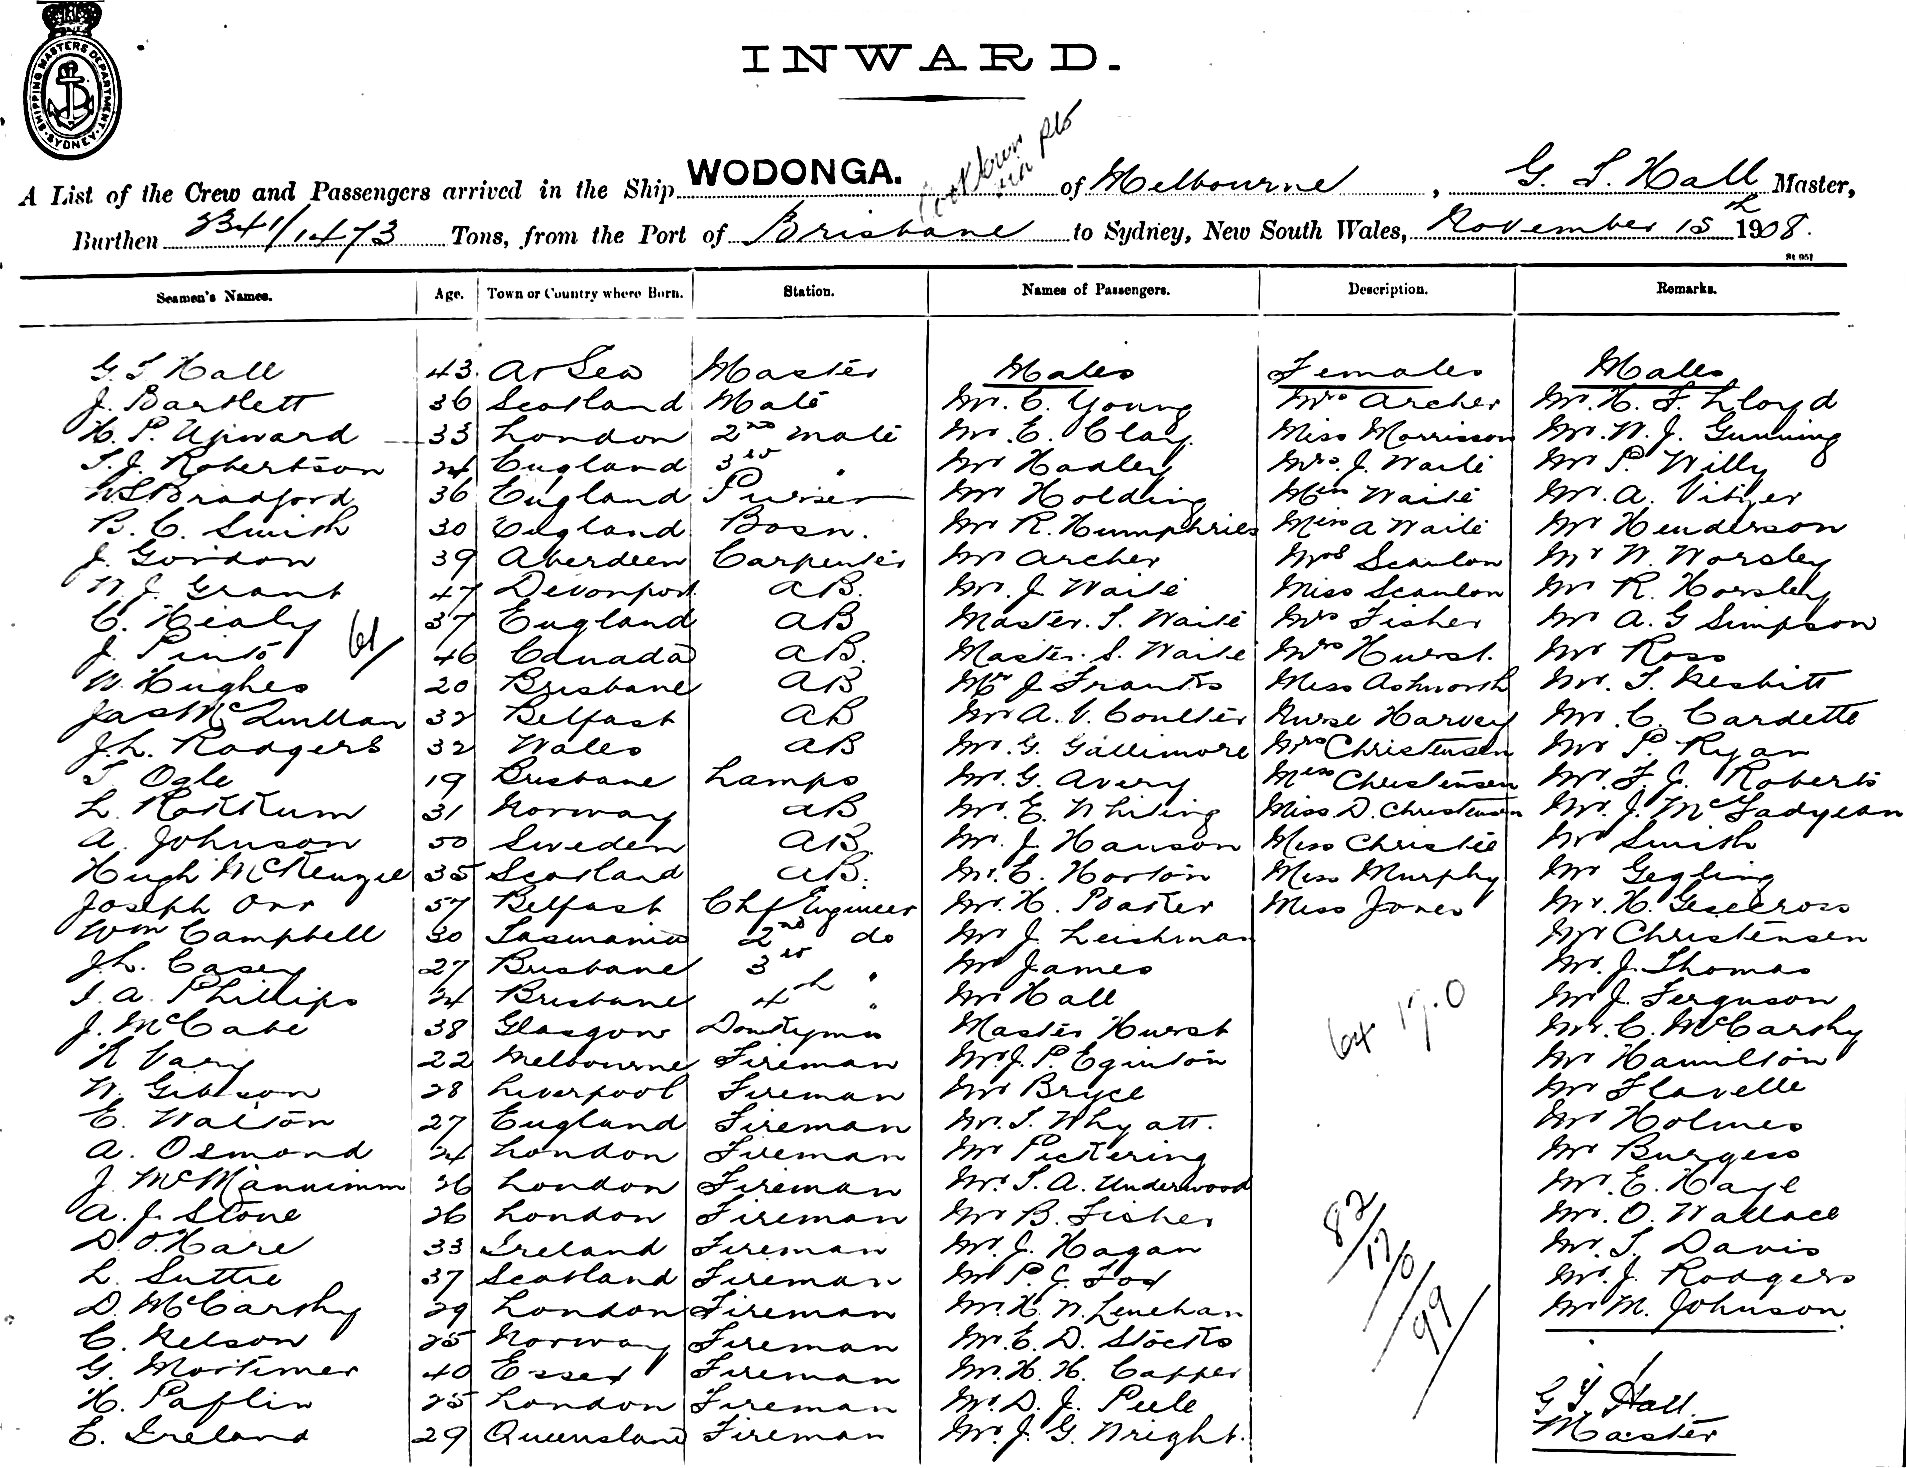 SHIPPING MASTERS DEPARTMENT. SYDNEY
INWARD.
Cooktown via pts
A List of the Crew and Passengers arrived in the Ship WODONGA. of Melbourne, G. T. Hall Master,
Burthen 2341/1473 Tons, from the Port of Brisbane to Sydney, New South Wales, November 15th 1908.
St 951
Seamen's Names. Age. Town or Country where Born. Station. Names of Passengers. Description. Remarks.
G. T Hall 43. At Sea Master Males Females Males
J. Bartlett 36 Scotland Mate Mr. C. Young Mrs Archer Mr. H. F. Lloyd
H. P. Upward 33 London 2nd mate Mr. E. Clay. Miss Morrisson Mr. W. J. Gunning
T. J. Robertson 24 England 3rd " Mr Hadley Mrs. J. Waite Mr P. Willy
W S Bradford 36 England Purser Mr Holding Miss Waite Mr. A.
B. C. Smith 30 England Bosn. Mr R. Humphries Miss A Waite Mr Henderson
J. Gordon 39 Aberdeen Carpenter Mr Archer Mrs Scanlon Mr W. Worsley
W. J. Grant 47 Devonport AB. Mr. J. Waite Miss Scanlon Mr R. Horsley
C. Healy 37 England AB Master. T. Waite Mrs Fisher Mr A. G Simpson
J. Pinto 61/ 46 Canada AB. Master. S. Waite Mrs Hurst. Mr Ross
W. Hughes 20 Brisbane AB Mr J Franks Miss Ashworth Mr. T. Nesbitt
Jas McQuillan 32 Belfast AB Mr A. V. Coulter Nurse Harvey Mr. C. Cardette
J. L. Rodgers 32 Wales AB Mr. G. Gallimore Mrs Christensen Mr P. Ryan
T. Ogle 19 Brisbane Lamps Mr. G. Avery Miss Christensen Mr. F. J. Roberts
L. Rokkum 31 Norway AB Mr. E. Whiting Miss. D. Christensen Mr. J. McFadyean
A. Johnson 50 Sweden AB. Mr. J. Hanson Miss Christie Mr Smith
Hugh McKenzie 35 Scotland AB. Mr. C. Horton Miss Murphy Mr Gegling
Joseph Orr 57 Belfast Chf Engineer Mr. H. Paster Miss Jones Mr. H.
Wm Campbell 30 Tasmania 2nd do Mr J. Leishman Mr Christensen
J. L. Casey 27 Brisbane 3rd " Mr James Mr. J. Thomas
T. A. Phillips 24 Brisbane 4th " Mr Hall Mr J. Ferguson
J. McCabe 38 Glasgow Donkeyman Master Hurst 64 17.0 Mr. C. McCarthy
R Vary 22 Melbourne Fireman Mr. J. P. Eginton Mr Hamilton
W. Gibson 28 Liverpool Fireman Mr Bryce Mr Flavelle
E. Walton 27 England Fireman Mr. T. Whyatt. Mr Holmes
A. Osmond 24 London Fireman Mr Pickering Mr Burgess
J. McMannimm 26 London Fireman Mr. T. A. Underwood Mr. E. Haye
A. J. Stone 26 London Fireman Mr B. Fisher 82/17/0/99 Mr. O. Wallace
D. O'Hare 33 Ireland Fireman Mr. J. Hagan Mr. T. Davis
L. Suttie 37 Scotland Fireman Mr P. J. Fox Mr. J. Rodgers
D. McCarthy 29 London Fireman Mr. H. W. Lenehan Mr M. Johnson.
C. Nelson 25 Norway Fireman Mr. C. D. Stocks
G. Mortimer 40 Essex Fireman Mr. H. H. Capper
H. Paflin 25 London Fireman Mr. D. J. Peele G T Hall.
E. Ireland 29 Queensland Fireman Mr. J. G. Wright. Master